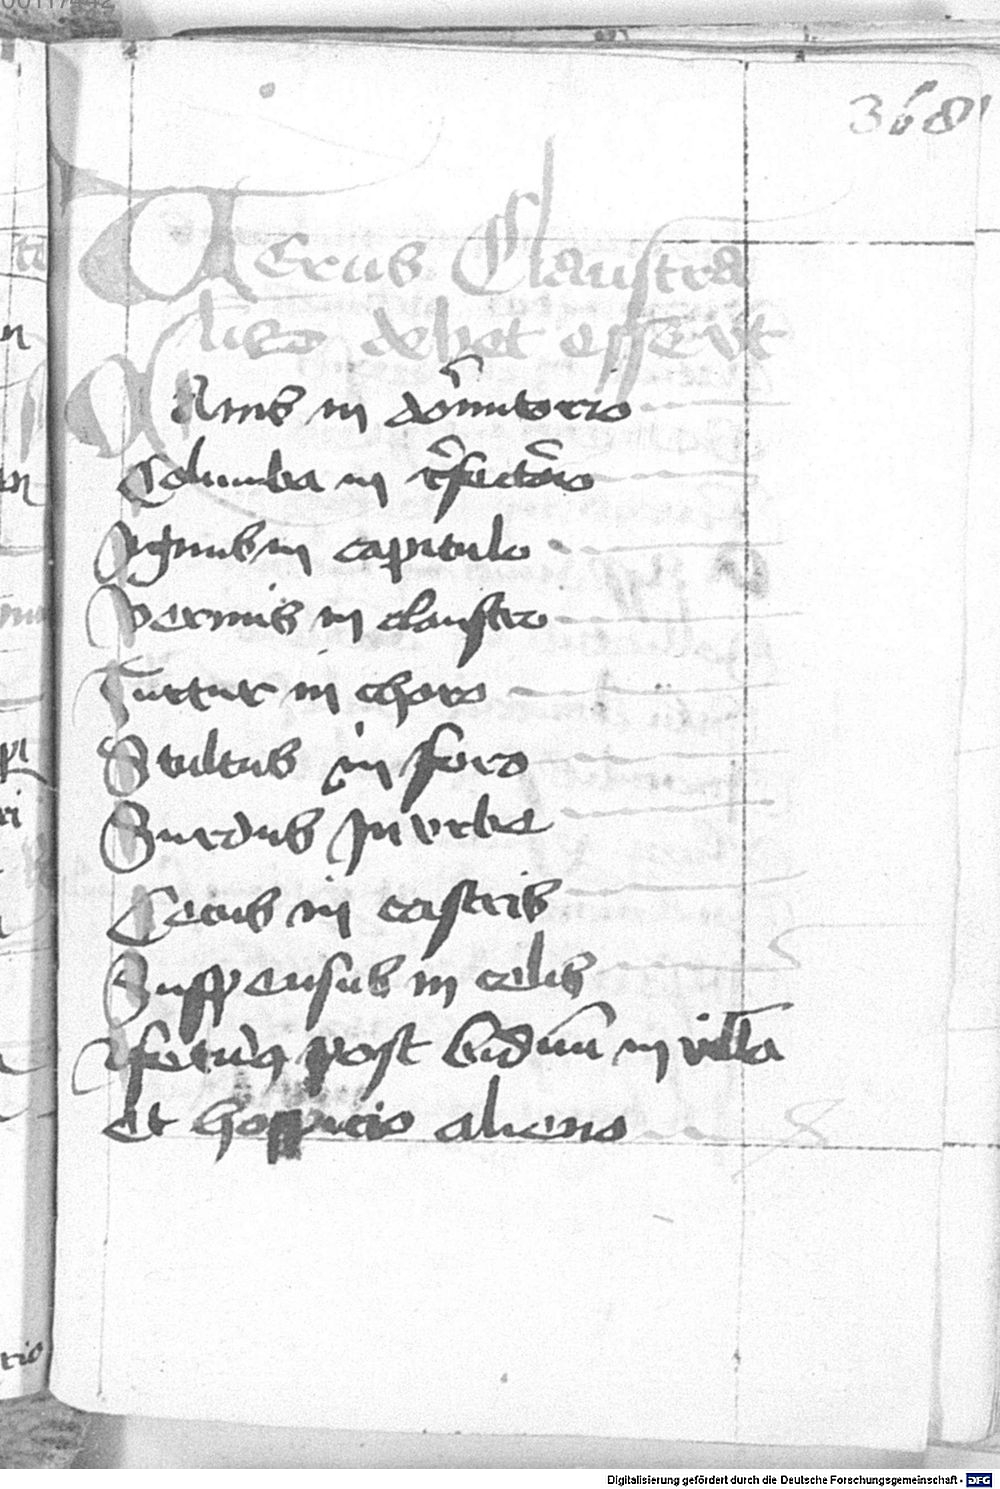 368
Uerus Claustra
lis debet esse ut
Asinus in dormitorio
Columba in refectorio
Agnus in capitulo
Vermis in claustro
Turtur in choro
Stultus in foro
Surdus in urbe
Cecus in castris
Suspensus in celis
post biduum in villa
et hospicio alieno
Digitalisierung gefördert durch die Deutsche Forschungsgemeinschaft - DFG